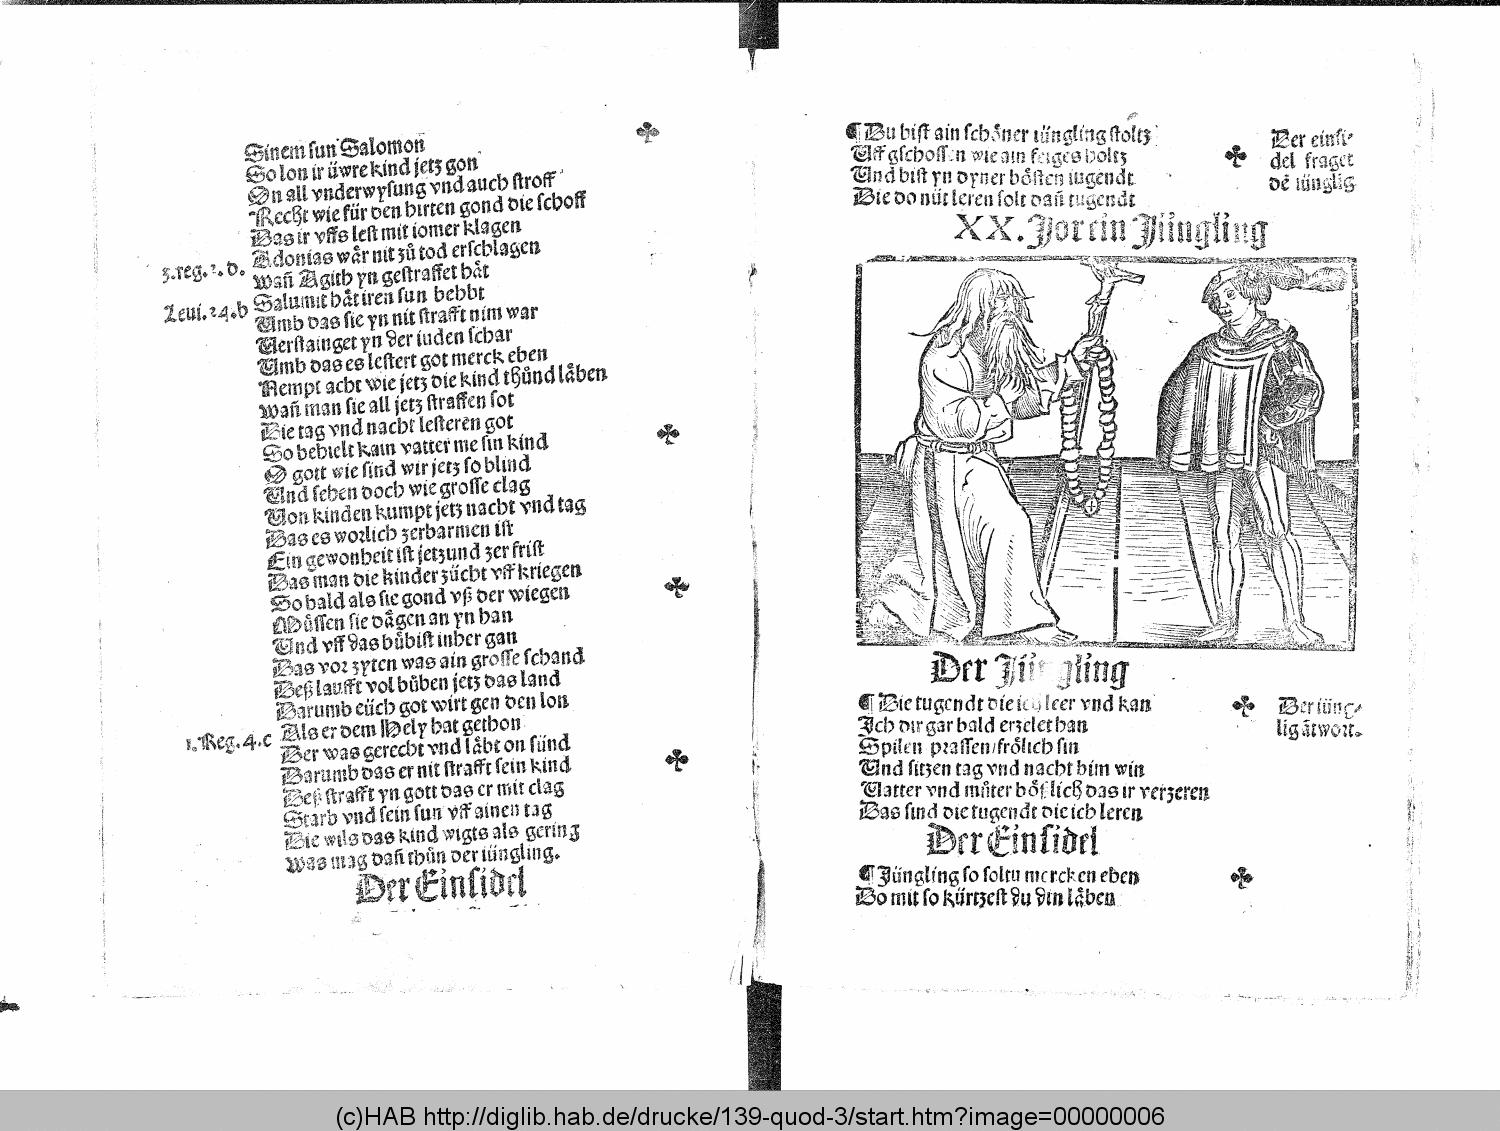 Sinem sun Salomon
So lon ir üwre kind jetz gon
On all vnderwysung vnd auch stroff
Recht wie für den hirten gond die schoff
Das ir vffs lest mit iomer klagen
Adonias wår nit zů tod erschlagen
3.reg.2.d.
wañ Agith yn gestraffet håt
Salumit håt iren sun hebht
Leui.24.b
Umb das sie yn nit strafft nim war
Uerstainget yn der iuden schar
Umb das es lestert got merck eben
Nempt acht wie jetz die kind thůnd låben
wañ man sie all jetz straffen sot
Die tag vnd nacht lesteren got
So behielt kain vatter me sin kind
O gott wie sind wir jetz so blind
Und sehen doch wie grosse clag
Uon kinden kumpt jetz nacht vnd tag
Das es worlich zerbarmen ist
Ein gewonheit ist jetzund zer frist
Das man die kinder zücht vff kriegen
So bald als sie gond vß der wiegen
Můssen sie dågen an yn han
Und vff das bübist inher gan
Das vor zyten was ain grosse schand
Deß laufft vol bůben jetz das land
Darumb eüch got wirt gen den lon
Als er dem Hely hat gethon
1.Reg.4.c
Der was gerecht vnd låbt on sünd
Darumb das er nit strafft sein kind
Deß strafft yn gott das er mit clag
Starb vnd sein sun vff ainen tag
Die wils das kind wigts als gering
Was mag dañ thůn der iüngling.
Der Einsidel
¶ Du bist ain schöner iüngling stoltz
Uff gschossen wie ain feiges holtz
Und bist yn dyner bösten iugendt
Die do nüt leren solt dañ tugendt
Der einsi-
del fraget
dē iünglig
XX. Jor ein Jüngling
Der Jüngling
¶ Die tugendt die ich leer vnd kan
Ich dir gar bald erzelet han
Spilen prassen/frölich sin
Und sitzen tag vnd nacht bim win
Uatter vnd můter böslich das ir verzeren
Das sind die tugendt die ich leren
Der iüng-
lig ātwort.
Der Einsidel
¶ Jüngling so soltu mercken eben
Do mit so kürtzest du din låben
(c)HAB http://diglib.hab.de/drucke/139-quod-3/start.htm?image=00000006